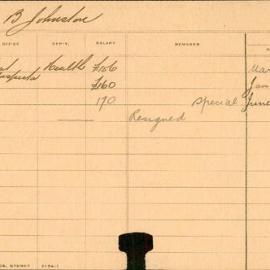 B Johnston
OFFICE DEPT. SALARY REMARKS
Health £156 Mar
£160 Jan
170 Special June
Resigned